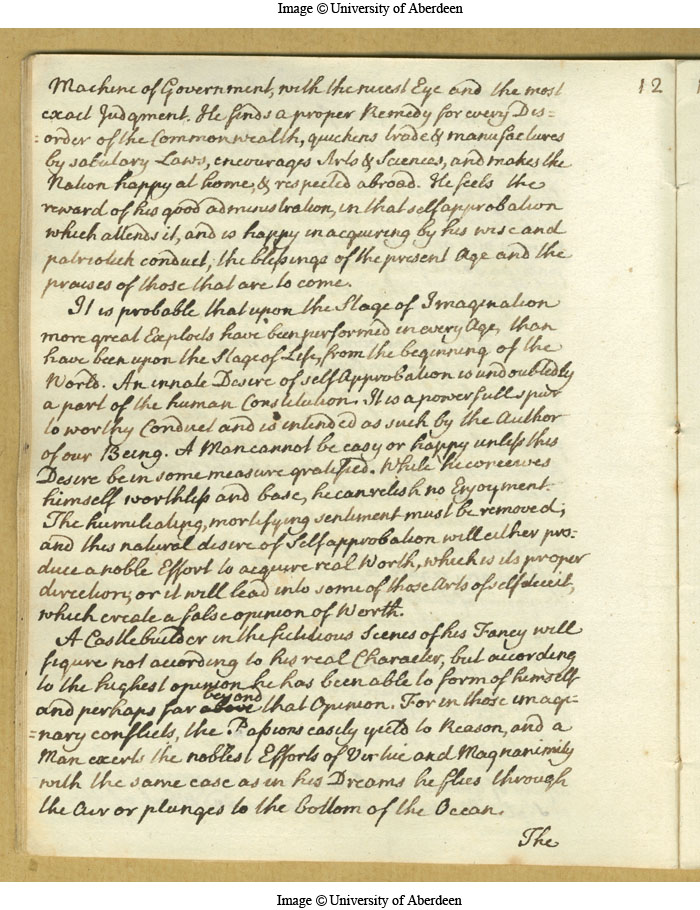 Image © University of Aberdeen
12
Machine of Government, with the nicest Eye and the most
exact Judgment. He finds a proper Remedy for every Dis=
=order of the Common wealth, quickens trade & manufactures
by salutary Laws, encourages Arts & Sciences, and makes the
Nation happy at home, & respected abroad. He feels the
reward of his good administration, in that selfapprobation
which attends it, and is happy in acquiring by his wise and
patriotick conduct, the blessings of the present Age and the
praises of those that are to come.
It is probable that upon the Stage of Imagination
more great Exploits have been performed in every Age, than
have been upon the Stage of Life, from the beginning of the
World. An innate Desire of self Approbation is undoubtedly
a part of the human Constitution. It is a powerfull spur
to worthy Conduct and is intended as such by the Author
of our Being. A Man cannot be easy or happy unless this
Desire be in some measure gratified. While he conceives
himself worthless and base, he can relish no Enjoyment.
The humiliating, mortifying sentiment must be removed;
and this natural desire of Selfapprobation will either pro=
duce a noble Effort to acquire real Worth, which is its proper
direction; or it will lead into some of those Arts of selfdeceit,
which create a false opinion of Worth.
A Castlebuilder in the fictitious Scenes of his Fancy will
figure not according to his real Character, but according
to the highest opinion he has been able to form of himself
beyond
and perhaps far above that Opinion. For in those imagi=
=nary conflicts, the Passions easily yield to Reason, and a
Man exerts the noblest Efforts of Virtue and Magnanimity
with the same ease as in his Dreams he flies through
the Air or plunges to the bottom of the Ocean.
The
Image © University of Aberdeen